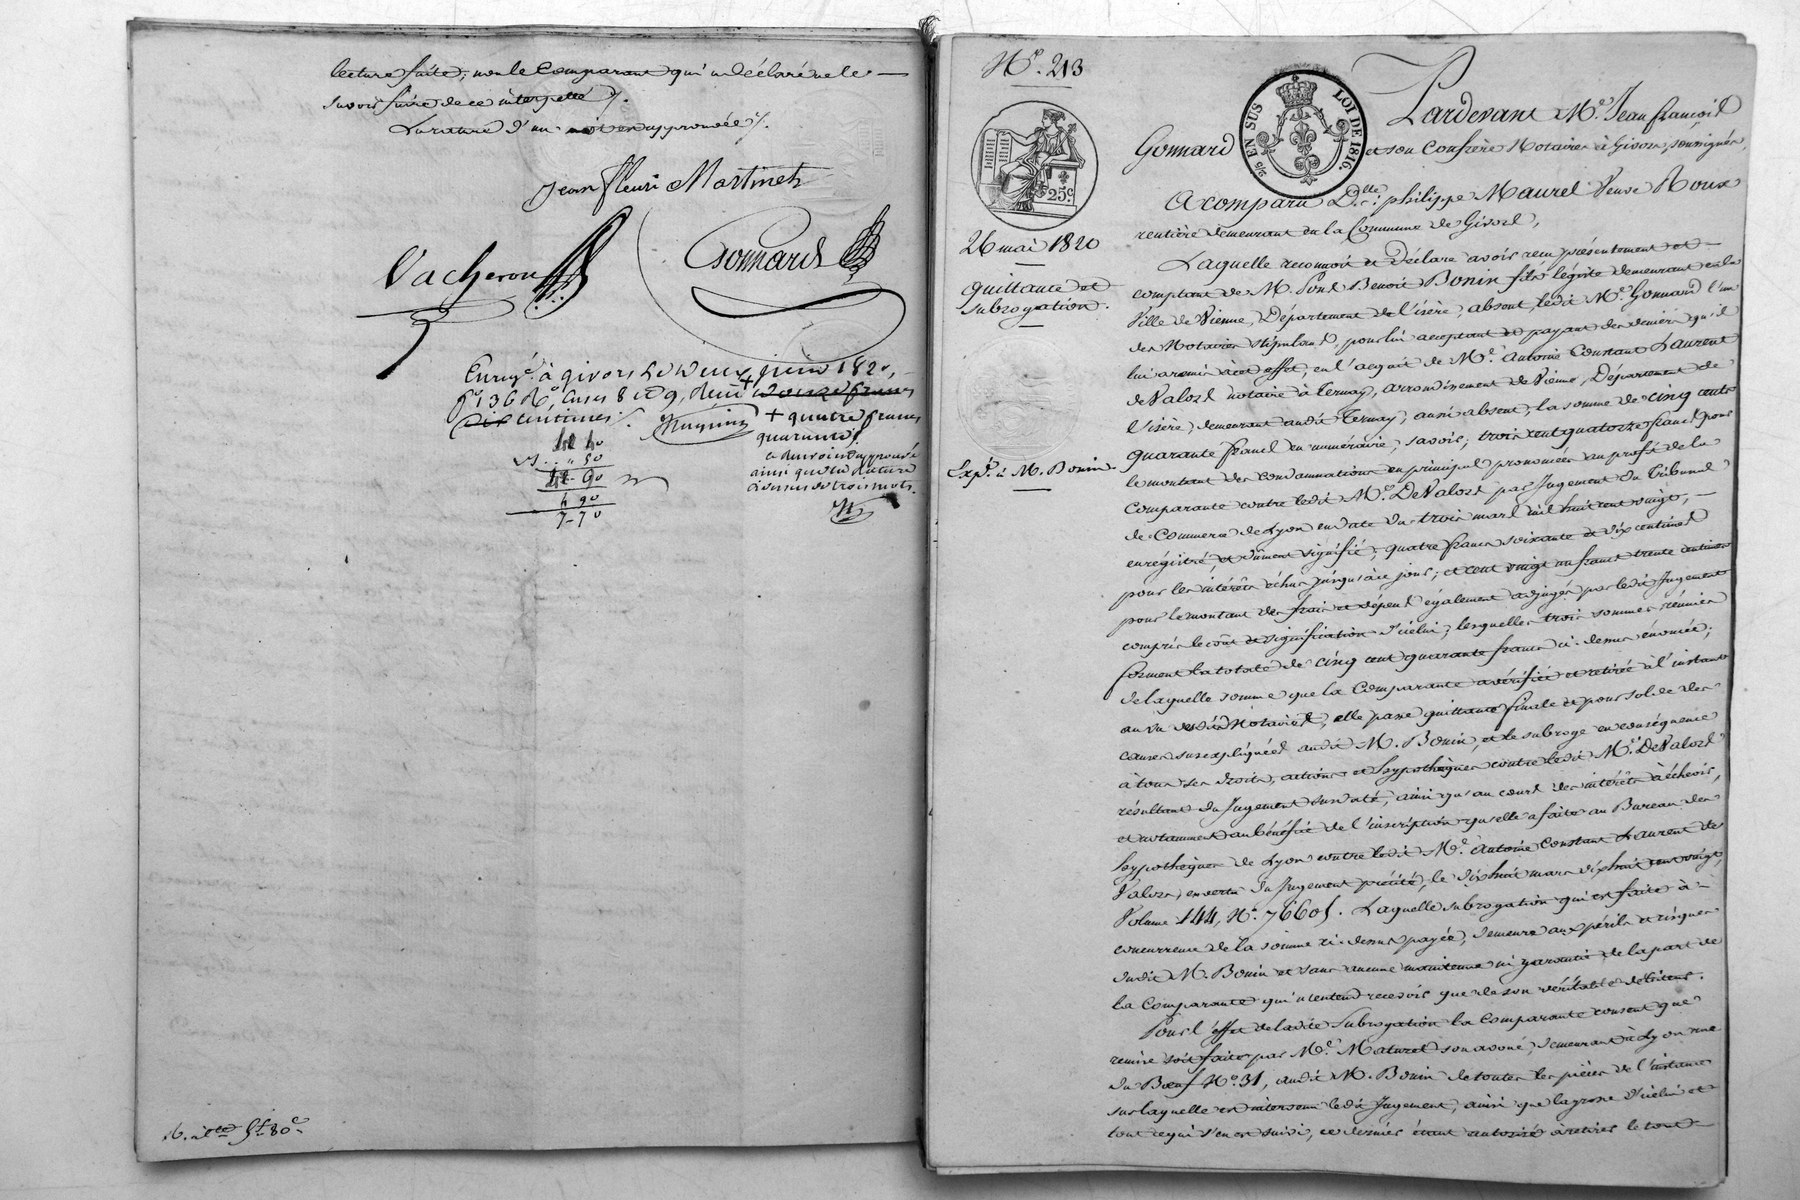 lecture faite, non le Comparant qui a déclaré ne le
savoir faire de ce interpellé ./.
La rature d'un mot en approuvée ./.
Jean fleuri Martinet
Vacheron
Gonnard
Enreg.é à givors le deux juin 1820,
f.o 136 R.o, Cases 8 et 9, Reçu
dix centimes ./.
+ quatre francs
quarante.
ce renvoi est approuvé
ainsi que la rature
ci dessus de trois mots.
4 90
7-70
N.o 213
EN SUS
LOI DE 1816.
25c.
26 mai 1820
quittance et
subrogation.
Exp.on à M. Bonin
Pardevant M.e Jean françois
Gonnard et son Confrère Notaires à Givors, soussignés,
A comparu D.lle philippe Maurel Veuve Roux
rentière demeurant en la Commune de Givors,
Laquelle reconnoit et déclare avoir reçu présentement et
comptant de M. Paul Benoit Bonin fils légiste demeurant en la
Ville de Vienne, Département de l'isère, absent, ledit M.e Gonnard l'un
des Notaires stipulant, pour lui acceptant et payant des deniers qu'il
lui a remis à cet effet, en l'acquit de M.e Antoine Constant Laurent
de Valors notaire à Ternay, arrondissement de Vienne, Département de
l'isère, demeurant audit Ternay, aussi absent, la somme de cinq cents
quarante francs en numéraire, savoir; trois cent quatorze francs pour
le montant des condamnations en principal prononcées au profit de la
comparante contre ledit M.e De Valors par Jugement du Tribunal
de Commerce de Lyon en date du trois mars mil huit cent vingt,
enregistré, et dûment signifié; quatre francs soixante et dix centimes
pour les intérêts échus jusqu'à ce jour; et cent vingt un francs trente centimes
pour le montant des frais et dépens également adjugés par ledit Jugement
compris le coût et signification d'icelui; lesquelles trois sommes réunies
forment la totale de cinq cent quarante francs ci-dessus énoncée;
de laquelle somme que la Comparante a vérifiée et retirée à l'instant
au vu desdits Notaires, elle passe quittance finale et pour solde des
causes susexpliquées audit M. Bonin, et le subroge en conséquence
à tous ses droits, actions et hypothèques contre ledit M.e De Valors
résultant du Jugement susdaté, ainsi qu'au cours des intérêts à échoir,
et notamment au bénéfice de l'inscription qu'elle a faite au Bureau des
hypothèques de Lyon contre ledit M.e Antoine Constant Laurent de
Valors, en vertu du Jugement précité, le dixhuit mars dixhuit cent vingt,
Volume 144, N.o 76605. Laquelle subrogation qui est faite à
concurrence de la somme ci-dessus payée, demeure aux périls et risques
dudit M. Bonin et sans aucune maintenue ni garantie de la part de
la Comparante qui n'entend recevoir que de son véritable débiteur.
Pour l'effet de ladite subrogation la Comparante consent que
remise soit faite par M.e Maturel son avoué, demeurant à Lyon rue
du Bœuf N.o 31, audit M. Bonin de toutes les pièces de l'instance
sur laquelle est intervenu ledit Jugement, ainsi que la grosse d'icelui et
tout ce qui s'en est suivi, ce dernier étant autorisé à retirer le tout